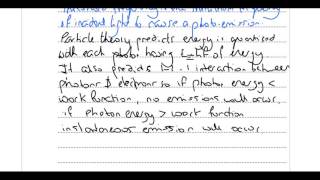 of incident light to cause a photoemission
Particle theory predicts energy is quantised
with each photon having E=hf of energy
It also predicts 1-1 interaction between
photons & electrons so if photon energy <
work function, no emissions will occur.
if photon energy > work function
instantaneous emission will occur.